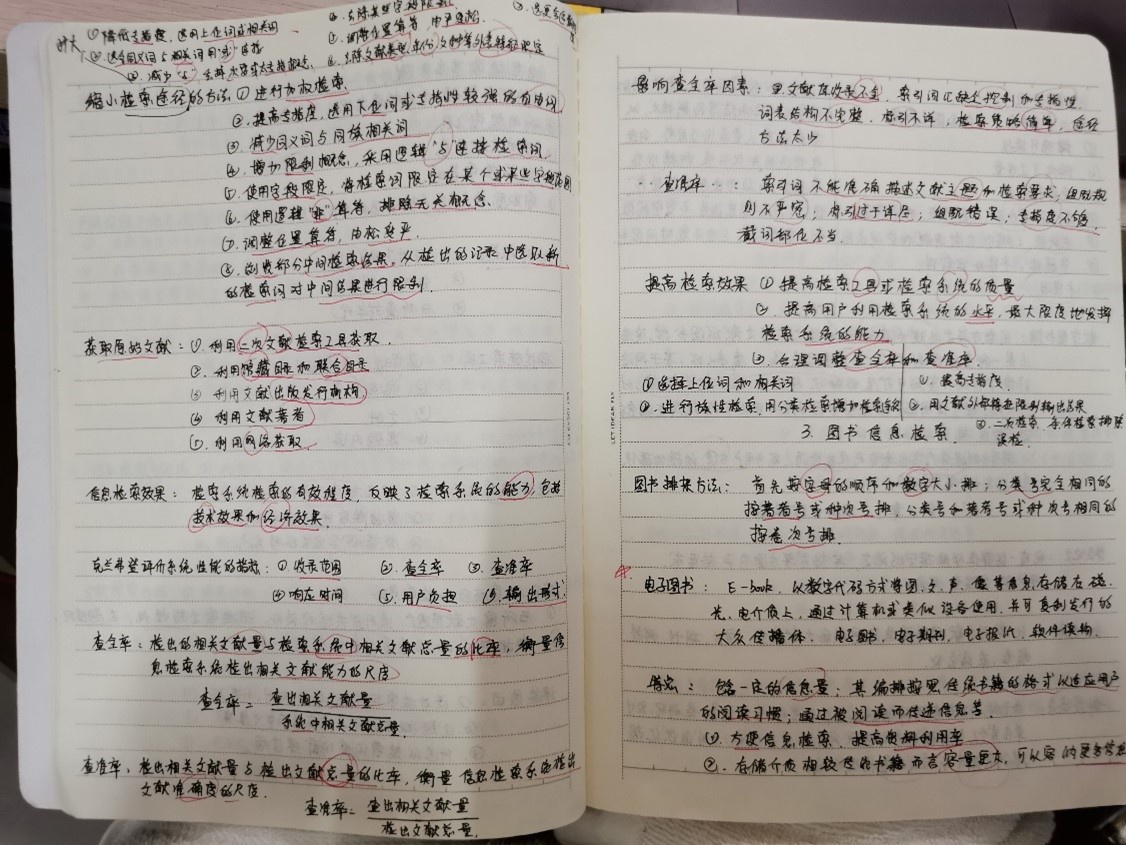 扩大 ① 降低专指度，选用上位词或相关词
④ 去除某些字段限制
② 选全同义词与相关词用"或"连接
⑤ 调整位置算符，由严变松
③ 减少"与"
缩小检索途径的方法：① 进行加权检索
② 提高专指度，选用下位词或专指性较强的自由词
③ 减少同义词与同族相关词
④ 增加限制概念，采用逻辑"与"连接检索词
⑤ 使用字段限定，将检索词限定在某个或某些字段范围
⑥ 使用逻辑"非"算符，排除无关概念
⑦ 调整位置算符，由松变严
⑧ 浏览部分中间检索结果，从检出的记录中选取新
的检索词对中间结果进行限制.
获取原始文献：① 利用二次文献检索工具获取.
② 利用馆藏目录和联合目录
③ 利用文献出版发行机构
④ 利用文献著者
⑤ 利用网络获取
信息检索效果：检索系统检索的有效程度，反映了检索系统的能力，包括
技术效果和经济效果.
克兰弗登评价系统性能的指标：① 收录范围 ② 查全率 ③ 查准率
④ 响应时间 ⑤ 用户负担 ⑥ 输出形式
查全率：检出的相关文献量与检索系统中相关文献总量的比率，衡量信
息检索系统检出相关文献能力的尺度
查全率 = 查出相关文献量
系统中相关文献总量
查准率：检出相关文献量与检出文献总量的比率，衡量信息检索系统检出
文献准确度的尺度.
查准率 = 查出相关文献量
检出文献总量.
影响查全率因素：里文献库收录不全，索引词汇缺乏控制和专指性
词表结构不完整，标引不详，检索策略简单，途径
方法太少
查准率：索引词不能准确描述文献主题和检索要求，组配规
则不严密；标引过于详尽；组配错误，专指度不够，
截词部位不当.
提高检索效果 ① 提高检索工具或检索系统的质量
② 提高用户利用检索系统的水平，最大限度地发挥
检索系统的能力
③ 合理调整查全率和查准率.
① 选择上位词和相关词 ① 提高专指度
② 进行族性检索，用分类检索增加检索途径 ② 用文献外部特征限制输出结果
③ 二次检索，条件检索排除
误检.
3. 图书信息检索.
图书排架方法：首先按字母的顺序和数字大小排；分类号完全相同的
按著者号或种次号排，分类号和著者号或种次号相同的
按卷次号排.
电子图书：E-book，以数字代码方式将图、文、声、像等信息存储在磁、
光、电介质上，通过计算机或类似设备使用，并可复制发行的
大众传播体：电子图书，电子期刊，电子报纸，软件读物.
特点：包含一定的信息量；其编排按照传统书籍的格式以适应用户
的阅读习惯；通过被阅读而传递信息等.
① 方便信息检索，提高资料利用率
② 存储介质相较传统书籍而言容量更大，可以容纳更多